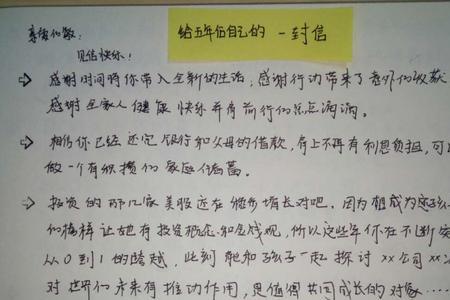 给五年后自己的一封信
亲爱的敏:
见信快乐!
⇒ 感谢时间将你带入全新的生活,感谢行动带来了意外的收获
感谢全家人健康快乐并肩前行的点点滴滴。
⇒ 相信你已经还完银行和父母的借款,身上不再有利息负担,可
做一个有积攒的家庭储蓄。
⇒ 投资的那几家美股还在稳步增长对吧。因为想成为孩子
的榜样让她有投资概念和金钱观,所以这些年你在不断
从0到1的跨越,此刻能和孩子一起探讨xx公司xx
对世界的未来有推动作用,是值得共同成长的对象……